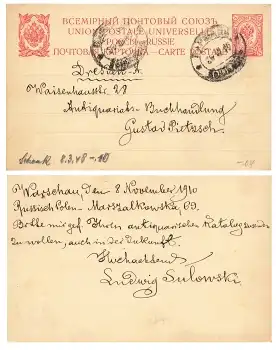 ВСЕМІРНЫЙ ПОЧТОВЫЙ СОЮЗЪ.
UNION POSTALE UNIVERSELLE
РОССІЯ RUSSIE
ПОЧТОВАЯ КАРТОЧКА CARTE POSTALE
Dresden-A.
Waisenhausstr. 28
Antiquariats-Buchhandlung
Gustav Pietzsch
8.3.48
Warschau, den 8 November 1910
Russisch Polen - Marszalkowska, 69.
Bitte mir gef. Ihren antiquarischen Katalog senden
zu wollen, auch in der Zukunft.
Hochachtend
Ludwig Sulowski